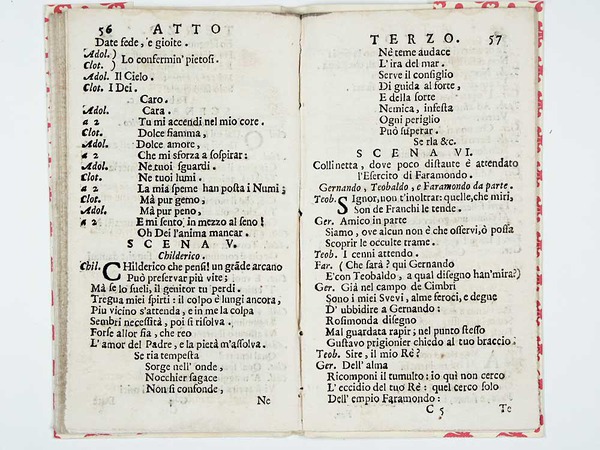 56 ATTO
Date fede, e gioite.
Adol. )
Clot. ) Lo confermin' pietosi.
Adol. Il Cielo.
Clot. I Dei.
Caro.
Adol. Cara.
a 2 Tu mi accendi nel mio core.
Clot. Dolce fiamma,
Adol. Dolce amore,
a 2 Che mi sforza a sospirar:
Adol. Ne tuoi sguardi.
Clot. Ne tuoi lumi.
a 2 La mia speme han posta i Numi;
Clot. Mà pur gemo,
Adol. Mà pur peno,
a 2 E mi sento in mezzo al seno!
Oh Dei l'anima mancar.
SCENA V.
Childerico.
Chil. CHilderico che pensi! un grãde arcano
Può preservar più vite;
Mà se lo sueli, il genitor tu perdi.
Tregua miei spirti: il colpo è lungi ancora,
Piu vicino s'attenda, e in me la colpa
Sembri necessità, poi si risolva.
Forse allor fia, che reo
L'amor del Padre, e la pietà m'assolva.
Se ria tempesta
Sorge nell' onde,
Nocchier sagace
Non si confonde,
Ne
TERZO. 57
Nè teme audace
L'ira del mar.
Serve il consiglio
Di guida al forte,
E della sorte
Nemica, infesta
Ogni periglio
Può superar.
Se ria &c.
SCENA VI.
Collinetta, dove poco distante è attendato
l'Esercito di Faramondo.
Gernando, Teobaldo, e Faramondo da parte.
Teob. SIgnor, non t'inoltrar: quelle, che miri,
Son de Franchi le tende.
Ger. Amico in parte
Siamo, ove alcun non è che osservi, ò possa
Scoprir le occulte trame.
Teob. I cenni attendo.
Far. (Che sarà? qui Gernando
E con Teobaldo, a qual disegno han'mira?)
Ger. Già nel campo de Cimbri
Sono i miei Svevi, alme feroci, e degne
D' ubbidire a Gernando:
Rosimonda disegno
Mal guardata rapir; nel punto stesso
Gustavo prigionier chiedo al tuo braccio.
Teob. Sire, il mio Rè?
Ger. Dell' alma
Ricomponi il tumulto: io quì non cerco
L' eccidio del tuo Rè: quel cerco solo
Dell' empio Faramondo:
C 5 Te